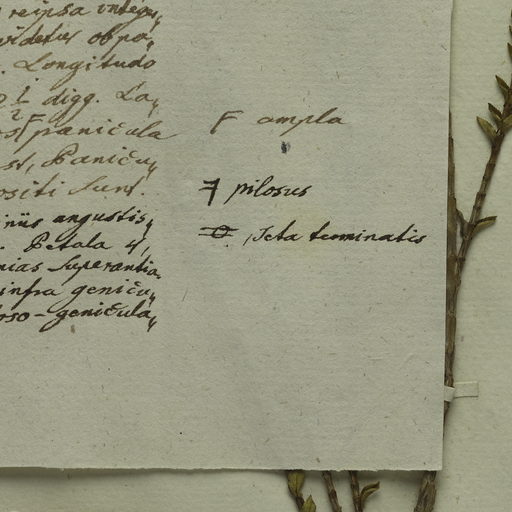 reipsa integ„
videtur obpo„
. Longitudo
½ digg. La„
est F panicula
st, Panicu„
ositi sunt.
niis angustis„
. Petala 4,
nias superantia„
infra genicu„
rso-genicula„
F ampla
7 pilosus
, seta terminatis